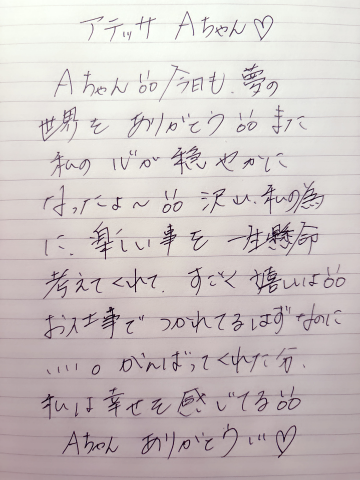 アテッサ Aちゃん♡
Aちゃん 今日も、夢の
世界を ありがとう また
私の 心が 穏やかに
なったよ〜 沢山、私の為
に、楽しい事を 一生懸命
考えてくれて、すごく 嬉しいよ
お仕事で つかれてるはずなのに
....。がんばってくれた分、
私は 幸せを 感じてる
Aちゃん ありがとう ♡